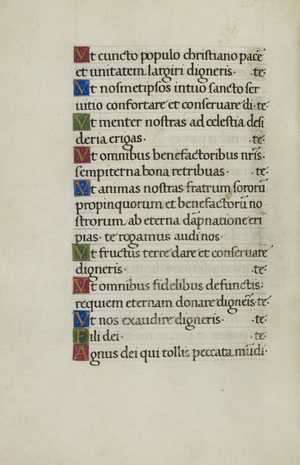 Vt cuncto populo christiano pacē
et unitatem largiri digneris · te·
Vt nosmetipsos in tuo sancto ser
uitio confortare et conseruare di· te·
Vt menter nostras ad celestia desi
deria erigas· te·
Vt omnibus benefactoribus nr̄is·
sempiterna bona retribuas· te·
Vt animas nostras fratrum sororū
propinquorum et benefactorū no
strorum ab eterna dāpnatione eri
pias· te rogamus audi nos·
Vt fructus terre dare et conseruare
digneris· te·
Vt omnibus fidelibus defunctis·
requiem eternam donare digneris te·
Vt nos exaudire digneris· te·
Fili dei· te·
Agnus dei qui tollis peccata mūdi·